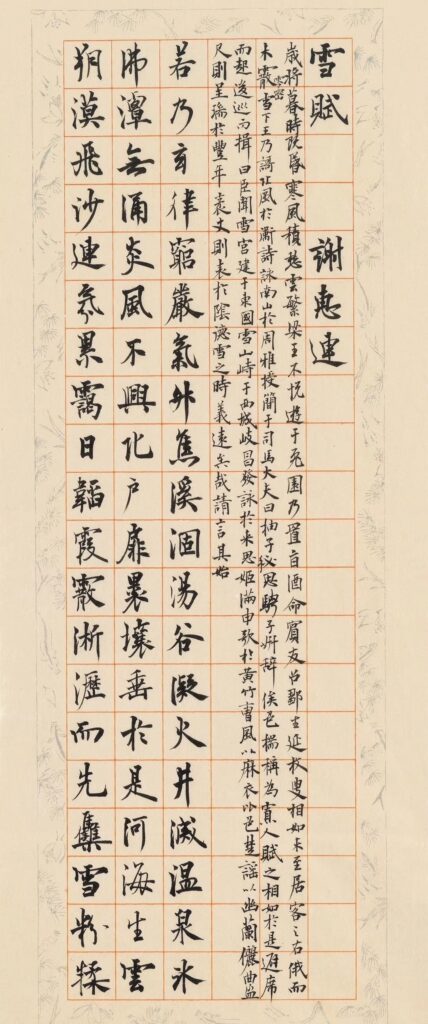 雪賦 謝惠連
歲將暮時既昏寒風積愁雲繁梁王不悅遊于兔園乃置旨酒命賓友召鄒生延枚叟相如末至居客之右俄而
霰零密雪下王乃謌北風於衛詩詠南山於周雅授簡于司馬大夫曰抽子秘思騁子妍辭侔色揣稱為寡人賦之相如於是避席
而起逡巡而揖曰臣聞雪宮建于東國雪山峙于西域岐昌發詠於來思姬滿申歌於黃竹曹風以麻衣比色楚謠以幽蘭儷曲盈
尺則呈瑞於豐年袤丈則表於陰德雪之時義遠矣哉請言其始
若乃玄律窮嚴氣升焦溪涸湯谷凝火井滅溫泉冰
沸潭無涌炎風不興北戶扉裸壤垂於是河海生雲
朔漠飛沙連氛累靄日韜霞霰淅瀝而先集雪粉糅